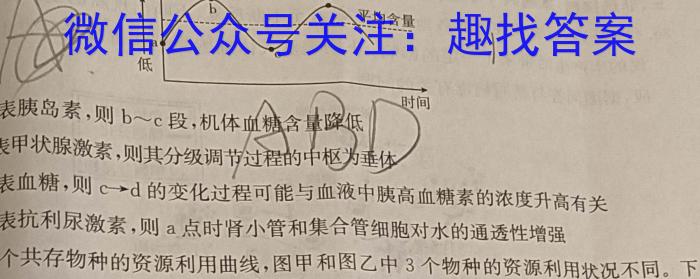 b
平均含量
微信公众号关注：趣找答案
a
c
低
时间
表胰岛素，则 b～c 段，机体血糖含量降低
ABD
表甲状腺激素，则其分级调节过程的中枢为垂体
表血糖，则 c→d 的变化过程可能与血液中胰高血糖素的浓度升高有关
表抗利尿激素，则 a 点时肾小管和集合管细胞对水的通透性增强
个共存物种的资源利用曲线，图甲和图乙中 3 个物种的资源利用状况不同。下